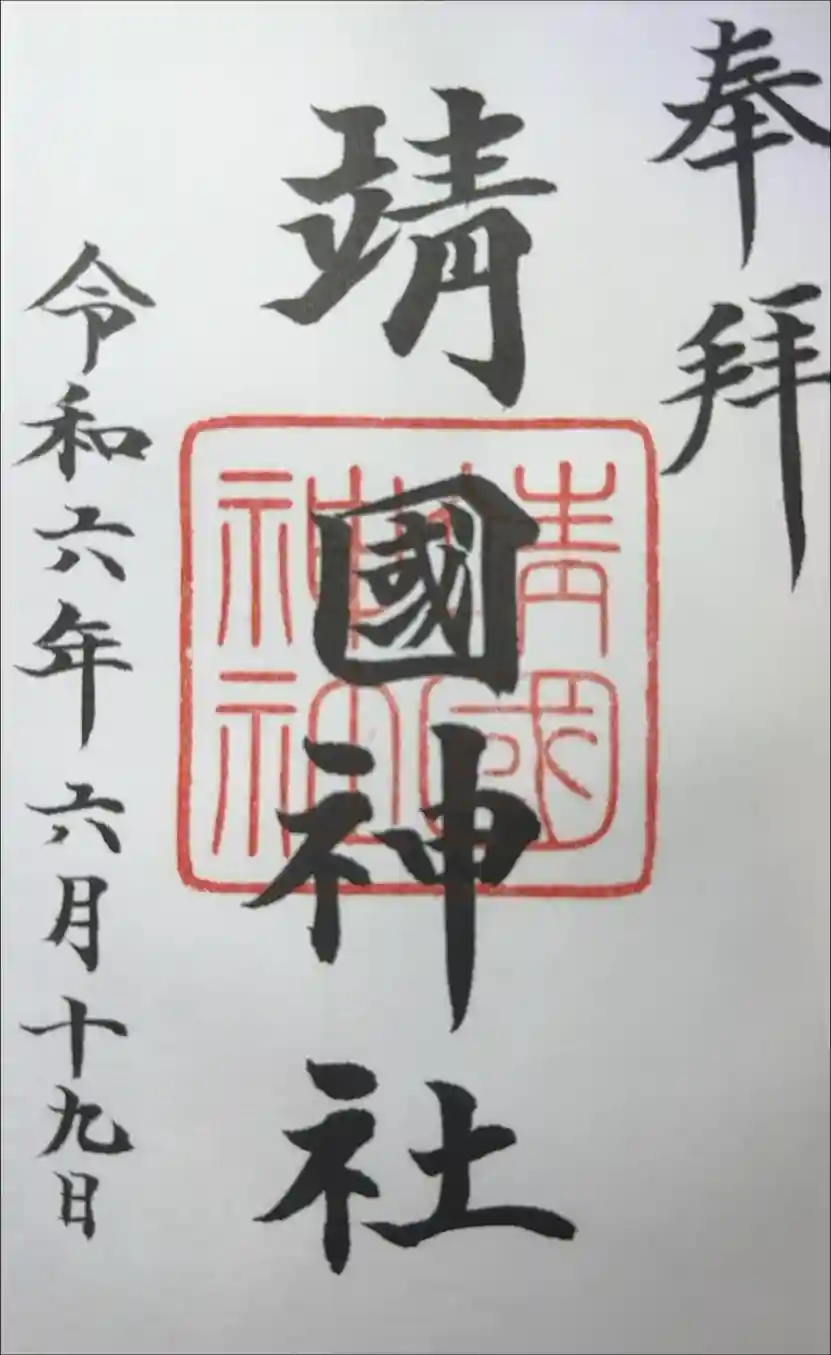 奉拝
靖國神社
令和六年六月十九日
靖國
神社